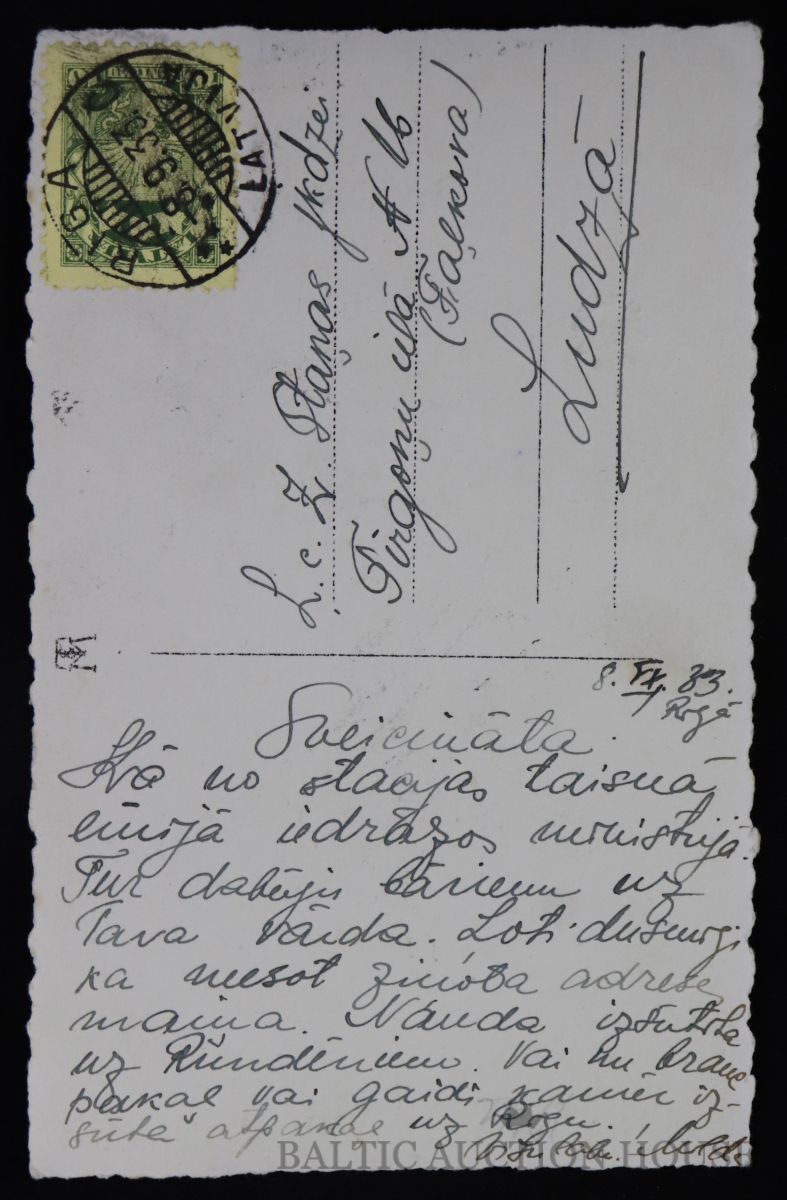 RIGA
LATVIJA
8 9 33
L. c. Z. Staņas jkdzei
Tirgoņu ielā N 16
(Faļkova)
Ludzā
8. IX. 33.
Rīgā
Sveicināta
Kā no stacijas taisnā
līnijā iedrāzos ministrijā.
Tur dabūju bārienu uz
Tava vārda. Loti dusmīgi
ka neesot ziņota adrese
maiņa. Nauda izsūtīta
uz Rundēniem. Vai nu brauc
pakaļ vai gaidi kamēr iz-
sūta atpakaļ uz Rīgu.
Milda
BALTIC AUCTION HOUSE